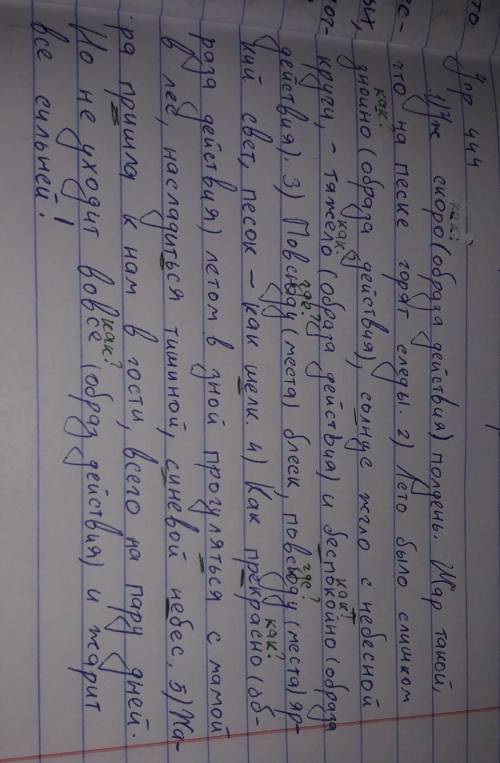 Упр 444
как?
1) Уж скоро (образа действия) полдень. Жар такой,
что на песке горят следы. 2) Лето было слишком
как?
знойно (образа действия), солнце жгло с небесной
как? как?
кручи, - тяжело (образа действия) и беспокойно (образа
где? где?
действия). 3) Повсюду (места) блеск, повсюду (места) яр-
как?
кий свет, песок – как шелк. 4) Как прекрасно (об-
раза действия) летом в зной прогуляться с мамой
в лес, насладиться тишиной, синевой небес, 5) Жа-
ра пришла к нам в гости, всего на пару дней.
как?
Но не уходит вовсе (образ действия) и жарит
все сильней!